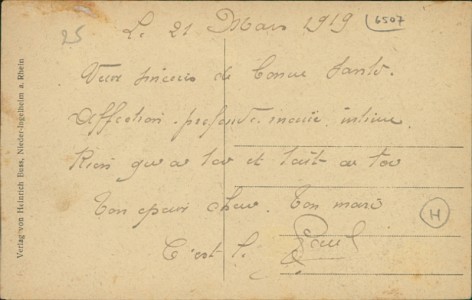 25
Le 21 Mars 1919
6507
Vœux sincères de bonne santé.
Affection profonde inouie, intime.
Rien qu'a toi et tout a toi
Ton cher. Ton mari
C'est le Paul
H
Verlag von Heinrich Buss, Nieder-Ingelheim a. Rhein